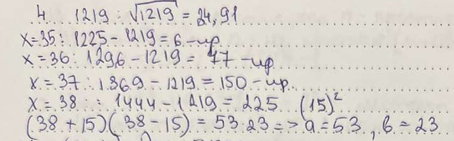 4. 1219 : √1219 = 34,91
x=35: 1225 - 1219 = 6 - ир
x = 36: 1296 - 1219 = 77 - ир
x = 37: 1369 - 1219 = 150 - ир
x = 38: 1444 - 1219 = 225 (15)²
(38 + 15)(38 - 15) = 53·23 => a = 53, b = 23